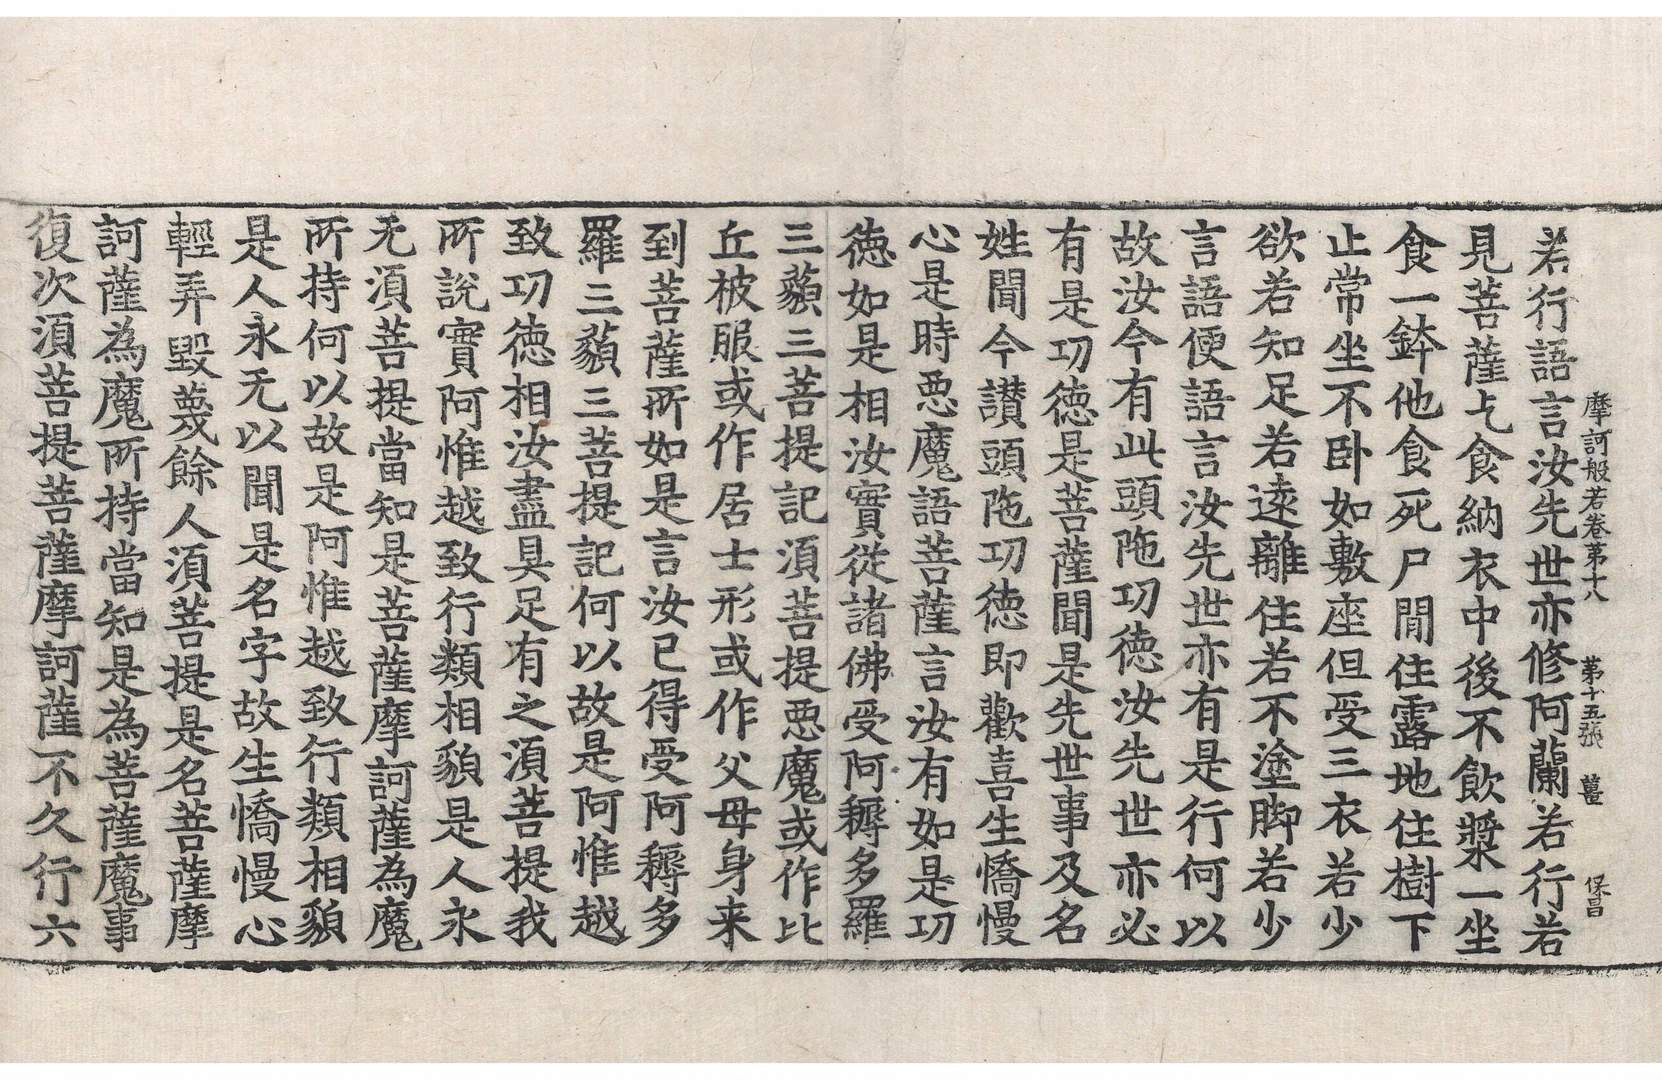 摩訶般若卷第十八 第十五張 薑 保昌
若行語言汝先世亦修阿蘭若行若
見菩薩乞食納衣中後不飲漿一坐
食一鉢他食死尸間住露地住樹下
止常坐不卧如敷座但受三衣若少
欲若知足若遠離住若不塗脚若少
言語便語言汝先世亦有是行何以
故汝今有此頭陁功德汝先世亦必
有是功德是菩薩聞是先世事及名
姓聞今讃頭陁功德即歡喜生憍慢
心是時惡魔語菩薩言汝有如是功
德如是相汝實從諸佛受阿耨多羅
三藐三菩提記須菩提惡魔或作比
丘被服或作居士形或作父母身来
到菩薩所如是言汝已得受阿耨多
羅三藐三菩提記何以故是阿惟越
致功德相汝盡具足有之須菩提我
所說實阿惟越致行類相貌是人永
无須菩提當知是菩薩摩訶薩為魔
所持何以故是阿惟越致行類相貌
是人永无以聞是名字故生憍慢心
輕弄毀蔑餘人須菩提是名菩薩摩
訶薩為魔所持當知是為菩薩魔事
復次須菩提菩薩摩訶薩不久行六